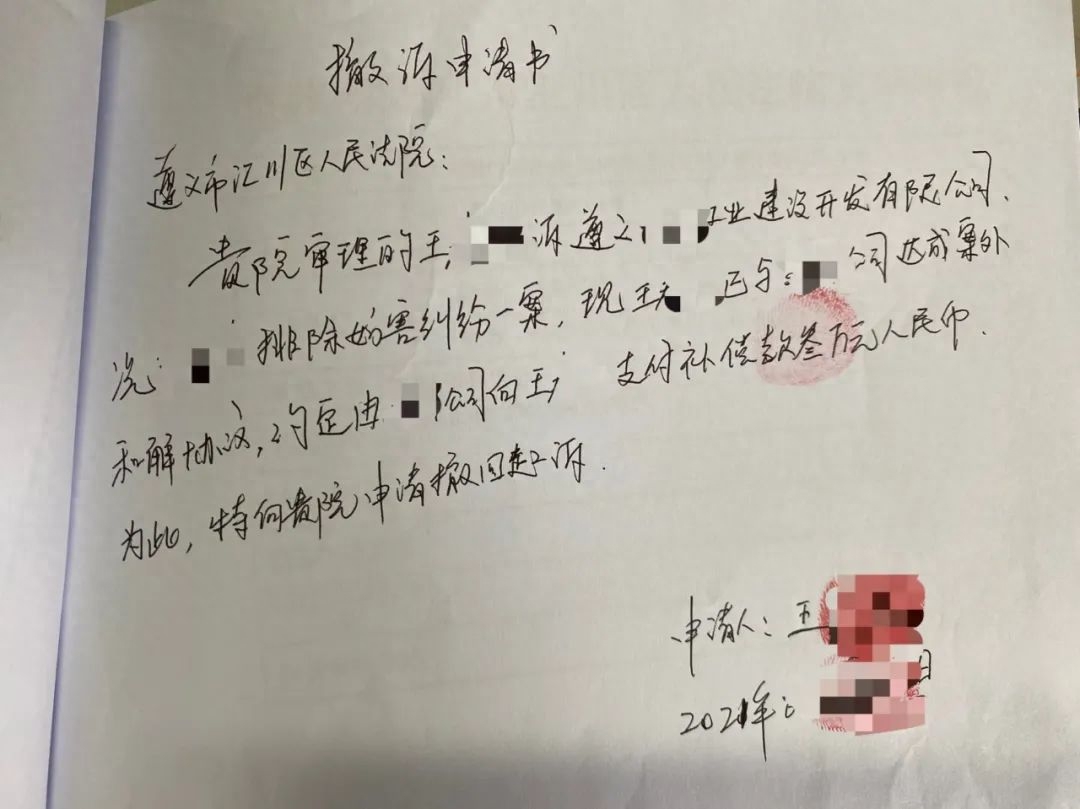 撤诉申请书
遵义市汇川区人民法院：
贵院审理的王 诉遵义 工业建设开发有限公司、
冼 排除妨害纠纷一案，现王 已与 公司达成案外
和解协议，约定由 公司向王 支付补偿款叁万元人民币.
为此，特向贵院申请撤回起诉.
申请人：王
2021年 日